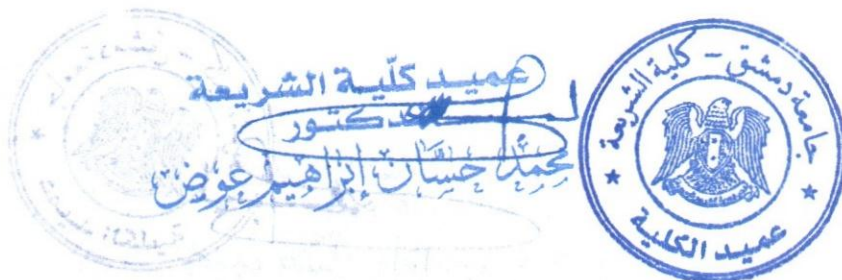 عميد كلّية الشريعة
الدكتور
محمّد حسّان إبراهيم عوض
جامعة دمشق - كلية الشريعة
عميد الكلية